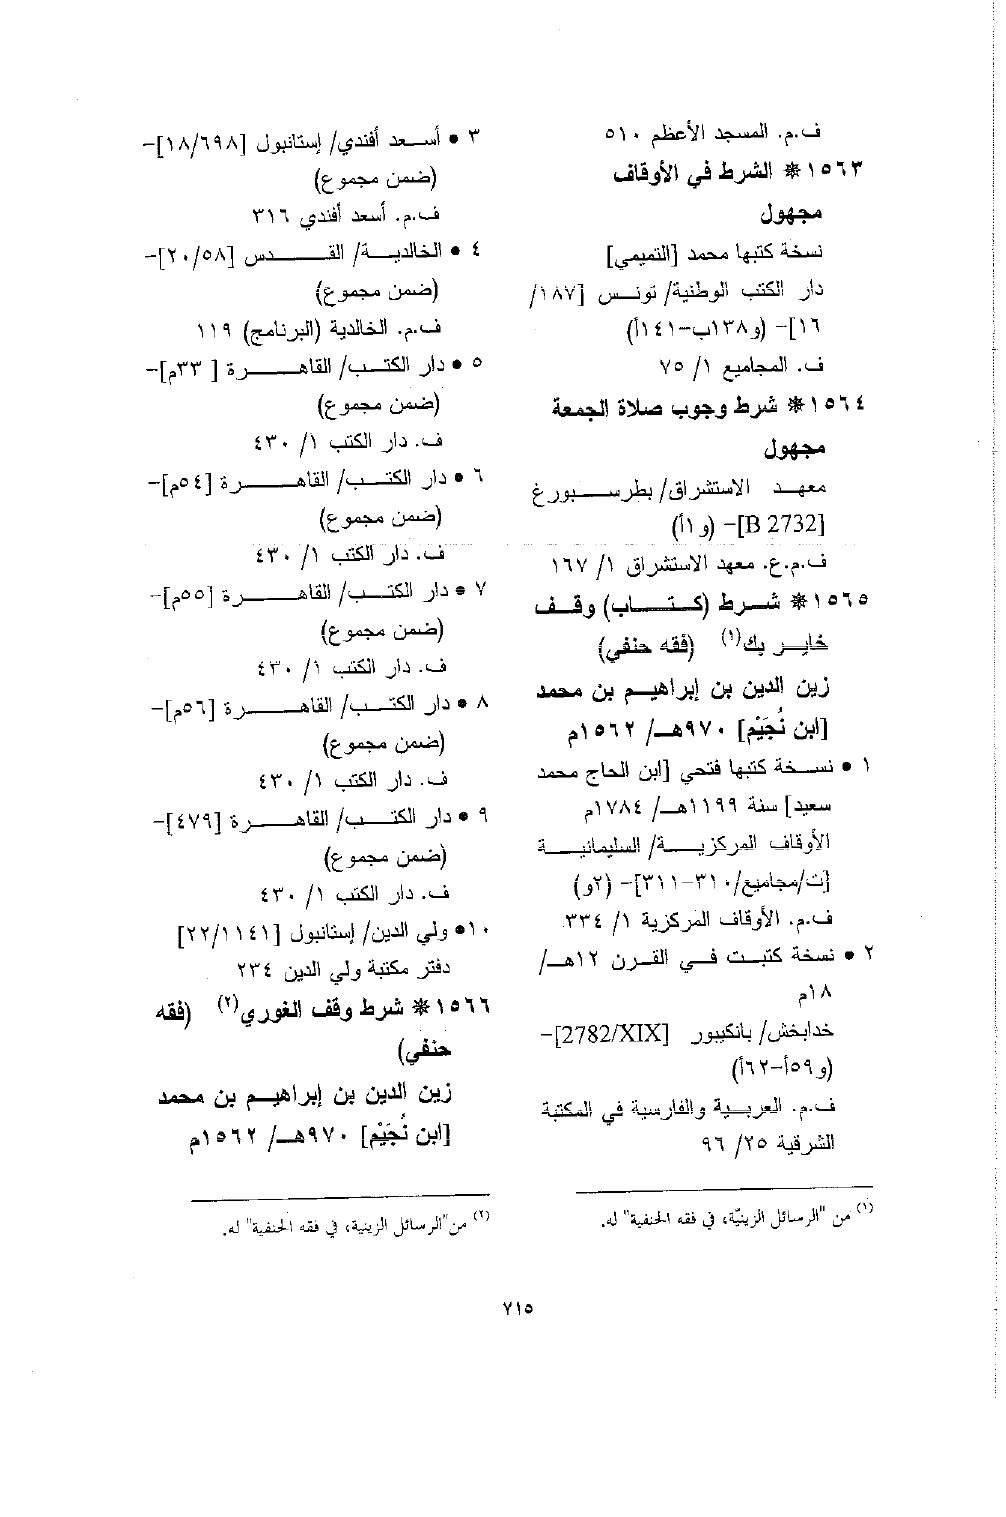 ف.م. المسجد الأعظم ٥١٠
١٥٦٣* الشرط في الأوقاف
مجهول
نسخة كتبها محمد [التميمي]
دار الكتب الوطنية/ تونس [١٨٧/
١٦]- (و١٣٨ب-١٤١أ)
ف. المجاميع ١/ ٧٥
١٥٦٤* شرط وجوب صلاة الجمعة
مجهول
معهد الاستشراق/ بطرسبورغ
[B 2732]- (و١أ)
ف.م.ع. معهد الاستشراق ١/ ١٦٧
١٥٦٥* شرط (كتاب) وقف
خاير بك(١) (فقه حنفي)
زين الدين بن إبراهيم بن محمد
[ابن نُجَيْم] ٩٧٠هـ/ ١٥٦٢م
١ • نسخة كتبها فتحي [ابن الحاج محمد
سعيد] سنة ١١٩٩هـ/ ١٧٨٤م
الأوقاف المركزية/ السليمانية
[ت/مجاميع/٣١٠-٣١١]- (٢و)
ف.م. الأوقاف المركزية ١/ ٣٣٤
٢ • نسخة كتبت في القرن ١٢هـ/
١٨م
خدابخش/ بانكيبور [2782/XIX]-
(و٥٩أ-٦٢أ)
ف.م. العربية والفارسية في المكتبة
الشرقية ٢٥/ ٩٦
(١) من "الرسائل الزينيّة، في فقه الحنفية" له.
٣ • أسعد أفندي/ إستانبول [١٨/٦٩٨]-
(ضمن مجموع)
ف.م. أسعد أفندي ٣١٦
٤ • الخالدية/ القدس [٢٠/٥٨]-
(ضمن مجموع)
ف.م. الخالدية (البرنامج) ١١٩
٥ • دار الكتب/ القاهرة [٣٣م]-
(ضمن مجموع)
ف. دار الكتب ١/ ٤٣٠
٦ • دار الكتب/ القاهرة [٥٤م]-
(ضمن مجموع)
ف. دار الكتب ١/ ٤٣٠
٧ • دار الكتب/ القاهرة [٥٥م]-
(ضمن مجموع)
ف. دار الكتب ١/ ٤٣٠
٨ • دار الكتب/ القاهرة [٥٦م]-
(ضمن مجموع)
ف. دار الكتب ١/ ٤٣٠
٩ • دار الكتب/ القاهرة [٤٧٩]-
(ضمن مجموع)
ف. دار الكتب ١/ ٤٣٠
١٠• ولي الدين/ إستانبول [٢٢/١١٤١]
دفتر مكتبة ولي الدين ٢٣٤
١٥٦٦* شرط وقف الغوري(٢) (فقه
حنفي)
زين الدين بن إبراهيم بن محمد
[ابن نُجَيْم] ٩٧٠هـ/ ١٥٦٢م
(٢) من"الرسائل الزينية، في فقه الحنفية" له.
٧١٥